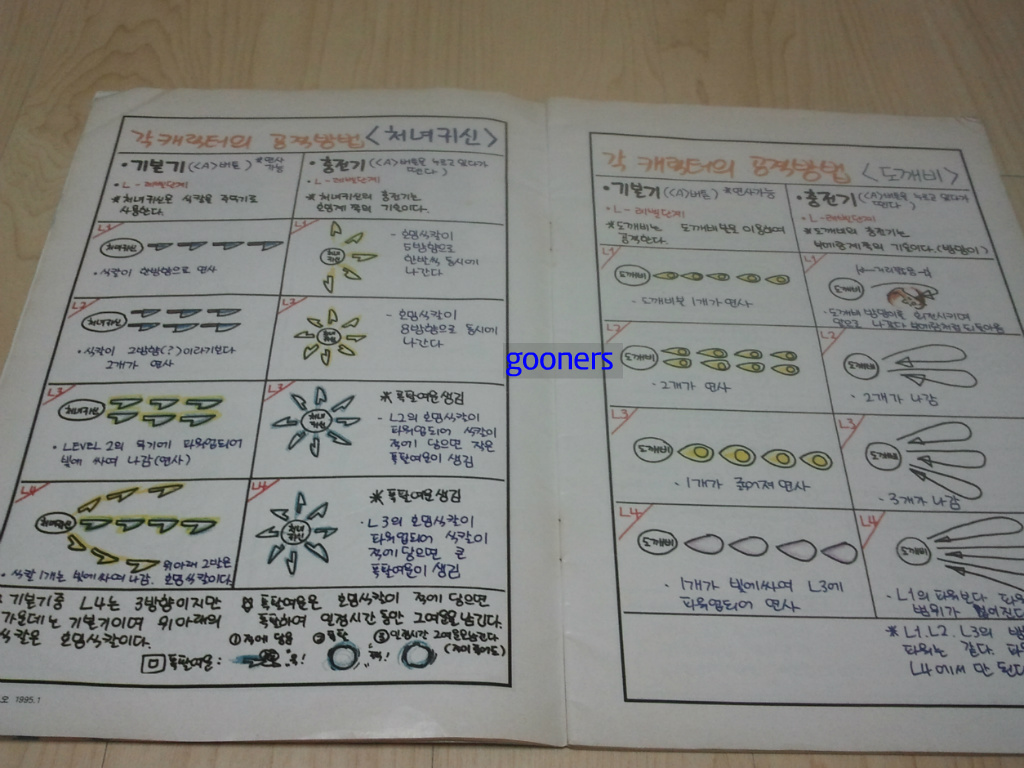 각 캐릭터의 공격방법 <처녀귀신>
• 기본기 (<A>버튼) *연사가능
• L-레벨단계
* 처녀귀신은 식칼을 주무기로
사용한다.
• 충전기 (<A>버튼을 누르고 있다가
뗀다)
• L-레벨단계
* 처녀귀신의 충전기는
호밍계 쪽의 기술이다.
L1
처녀귀신
• 식칼이 한방향으로 연사
L1
처녀귀신
- 호밍식칼이
5방향으로
한번씩 동시에
나간다
L2
처녀귀신
• 식칼이 2방향(?)이라기보다
2개가 연사
L2
- 호밍식칼이
8방향으로 동시에
나간다
L3
처녀귀신
• LEVEL 2의 무기에 파워업되어
빛에 싸여 나감(연사)
L3
처녀귀신
* 폭탄여운 생김
- L2의 호밍식칼이
파워업되어 식칼이
적에 닿으면 작은
폭탄여운이 생김
L4
처녀귀신
위아래 2발은
• 식칼 1개는 빛에싸여 나감. 호밍식칼이다.
L4
처녀귀신
* 폭탄여운 생김
• L3의 호밍식칼이
파워업되어 식칼이
적에 닿으면 큰
폭탄여운이 생김
* 기본기중 L4는 3방향이지만
가운데는 기본기이며 위아래의
식칼은 호밍식칼이다.
폭탄여운은 호밍식칼이 적에 닿으면
폭팔하여 일정시간 동안 그여운을 남긴다.
① 적에 닿음 ② 폭팔 ③ 일정시간 그여운을남긴다
폭탄여운:
1995.1
각 캐릭터의 공격방법 <도깨비>
• 기본기 (<A>버튼) *연사가능
• L-레벨단계
* 도깨비는 도깨비불을 이용하여
공격한다.
• 충전기 (<A>버튼을 누르고 있다가
뗀다)
• L-레벨단계
* 도깨비의 충전기는
L1
도깨비
• 도깨비불 1개가 연사
L1
도깨비
L2
도깨비
• 2개가 연사
L2
도깨비
• 2개가 나감
L3
도깨비
• 1개가 굵어져 연사
L3
도깨비
• 3개가 나감
L4
도깨비
• 1개가 빛에싸여 L3에
파워업되어 연사
L4
도깨비
• L1의 파워보다 파워
범위가 넓어진다
* L1. L2. L3의
파워는 같다.
L4에서 만 된다
gooners